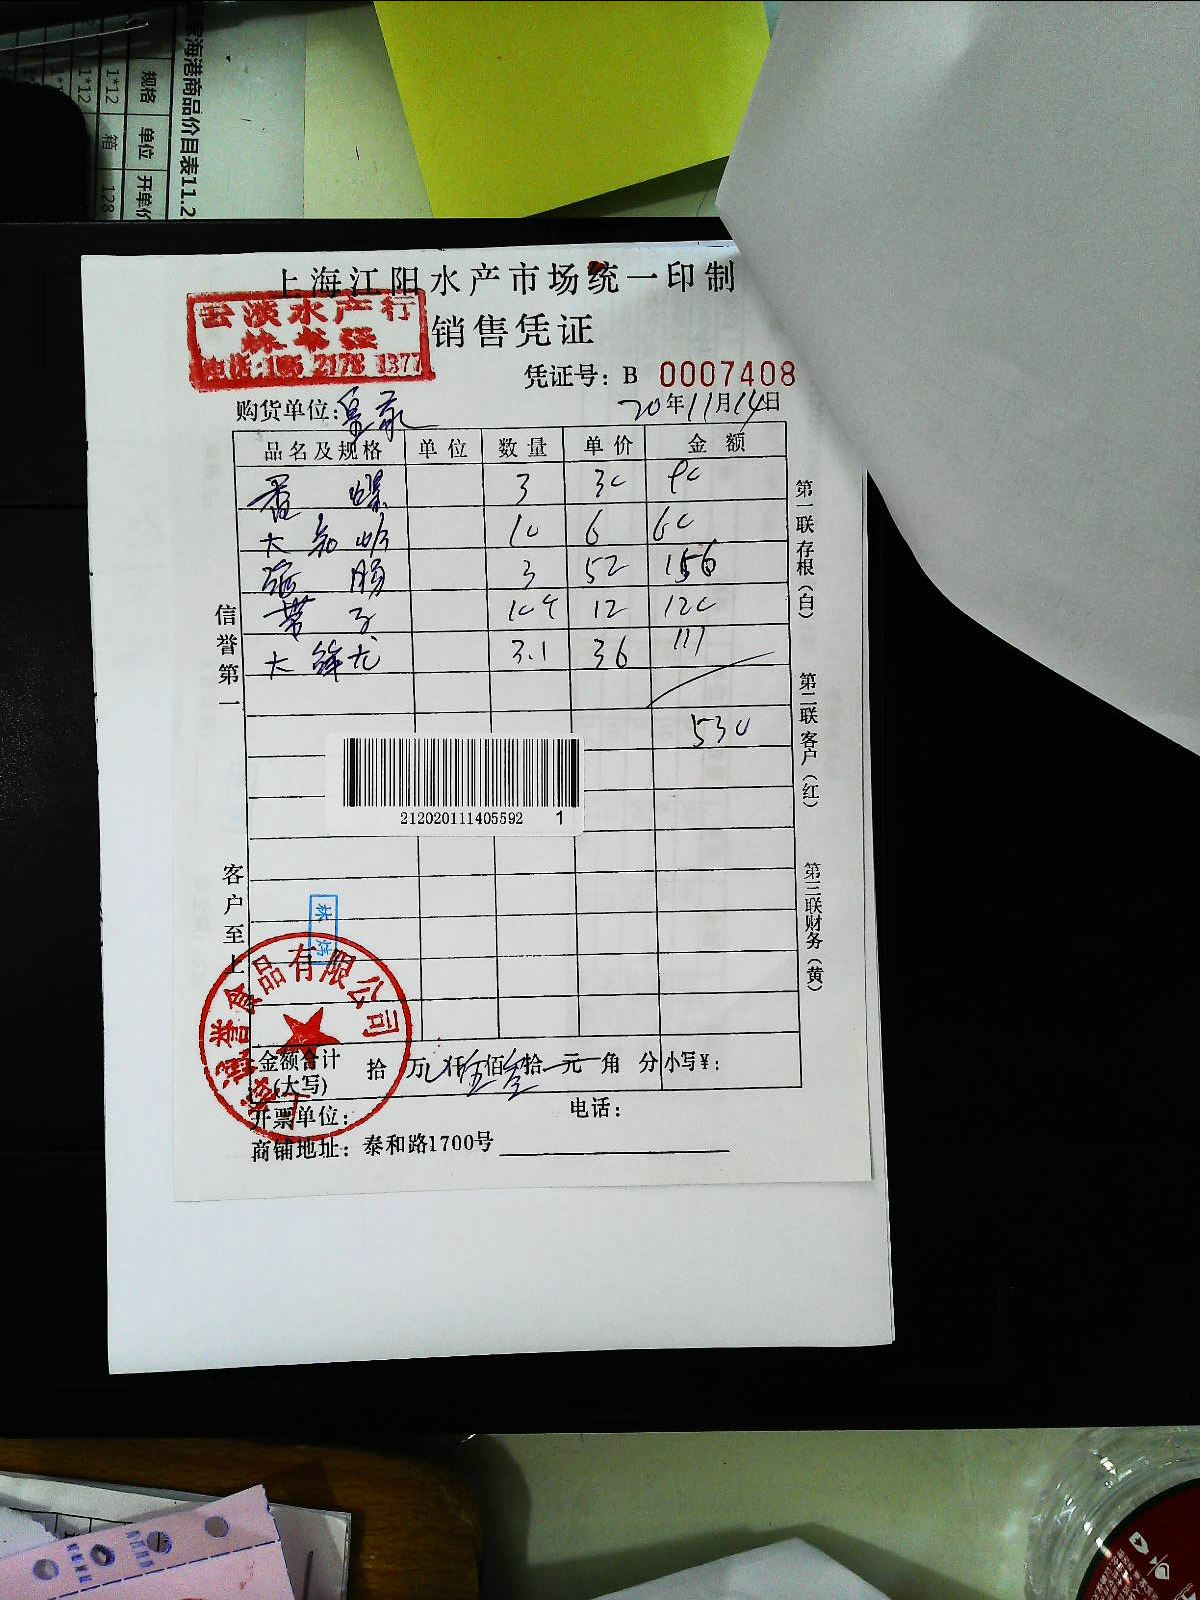 海港商品价目表11.2
规格 单位 开单价
1*12 箱 128
1*12
上海江阳水产市场统一印制
云淡水产行
销售凭证
凭证号：B 0007408
购货单位：
20年11月14日
品名及规格 单位 数量 单价 金额
3 30 90
大 10 6 60
肠 3 52 156
带子 10个 12 120
大 龙 3.1 36 111
530
212020111405592 1
信誉第一
客户至上
第一联存根（白）
第二联客户（红）
第三联财务（黄）
誉食品有限公司
金额合计
(大写)
拾 万 仟伍佰叁拾 元 角 分 小写¥：
开票单位：
电话：
商铺地址：泰和路1700号